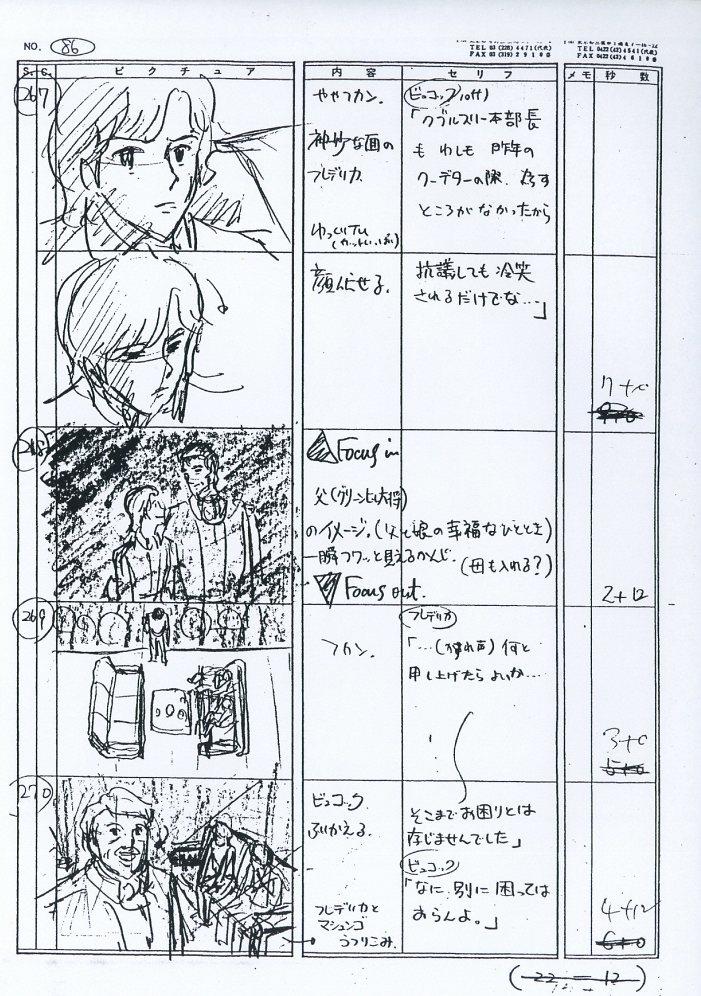 NO. 86
TEL 03 (228) 4471(代表)
FAX 03 (319) 29180
TEL 0422 (43) 4541(代表)
FAX 0422 (43) 46180
S. C. ピクチュア 内容 セリフ メモ 秒数
267
ややフカン。
神妙な面の
フレデリカ
ゆっくりTU
(カットいっぱい)
ビュコック(off)
「クブルスリー本部長
も わしも 昨年の
クーデターの際、為す
ところがなかったから
顔ふせる。
抗議しても冷笑
されるだけでな…」
7+0
268
Focus in
父(グリーンヒル大将)
のイメージ。(父と娘の幸福なひととき)
一瞬フワッと見えるかんじ。
(母も入れる?)
Focus out.
2+12
269
フカン。
フレデリカ
「…(かすれ声)何と
申し上げたらよいか…
3+0
270
ビュコック
ふりかえる。
フレデリカと
マシュンゴ
うつりこみ。
そこまでお困りとは
存じませんでした」
ビュコック
「なに 別に困っては
おらんよ。」
4+12
6+0
(22 = 12)